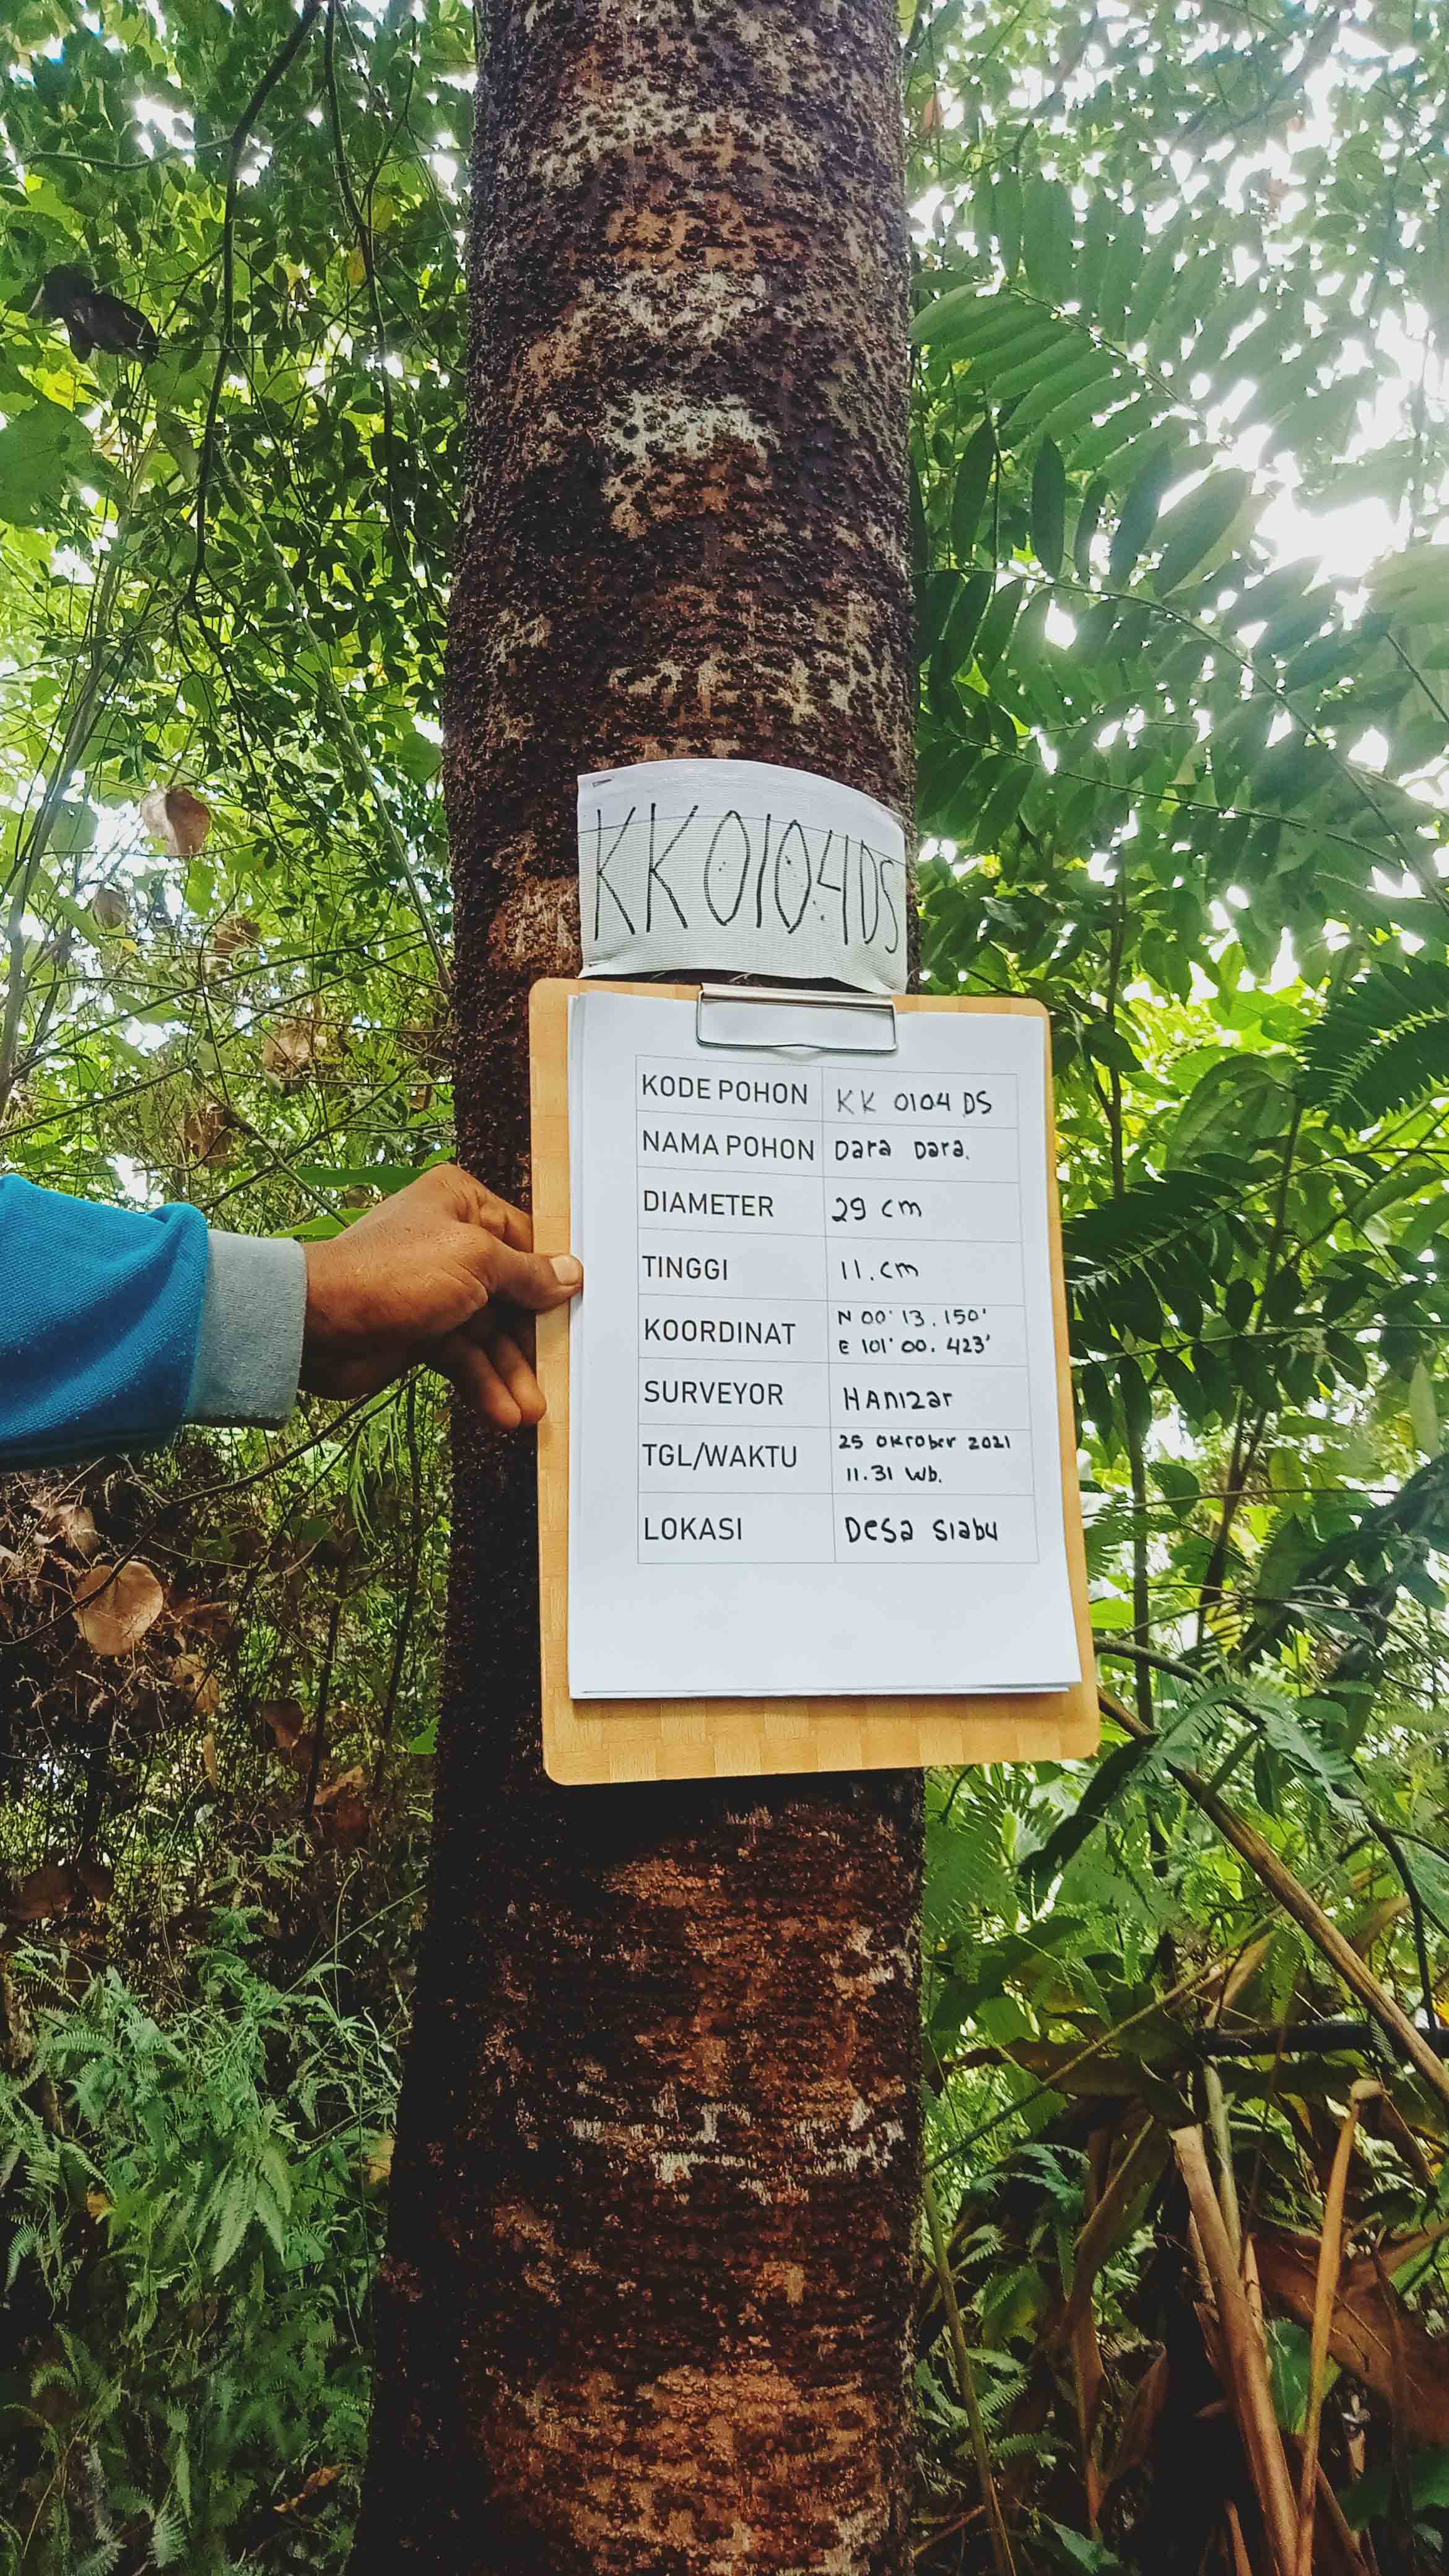 KK0104DS
KODE POHON KK 0104 DS
NAMA POHON Dara Dara.
DIAMETER 29 cm
TINGGI 11.cm
KOORDINAT N 00° 13. 150'
E 101° 00. 423'
SURVEYOR HAnizar
TGL/WAKTU 25 OKTober 2021
11.31 Wb.
LOKASI Desa Siabu